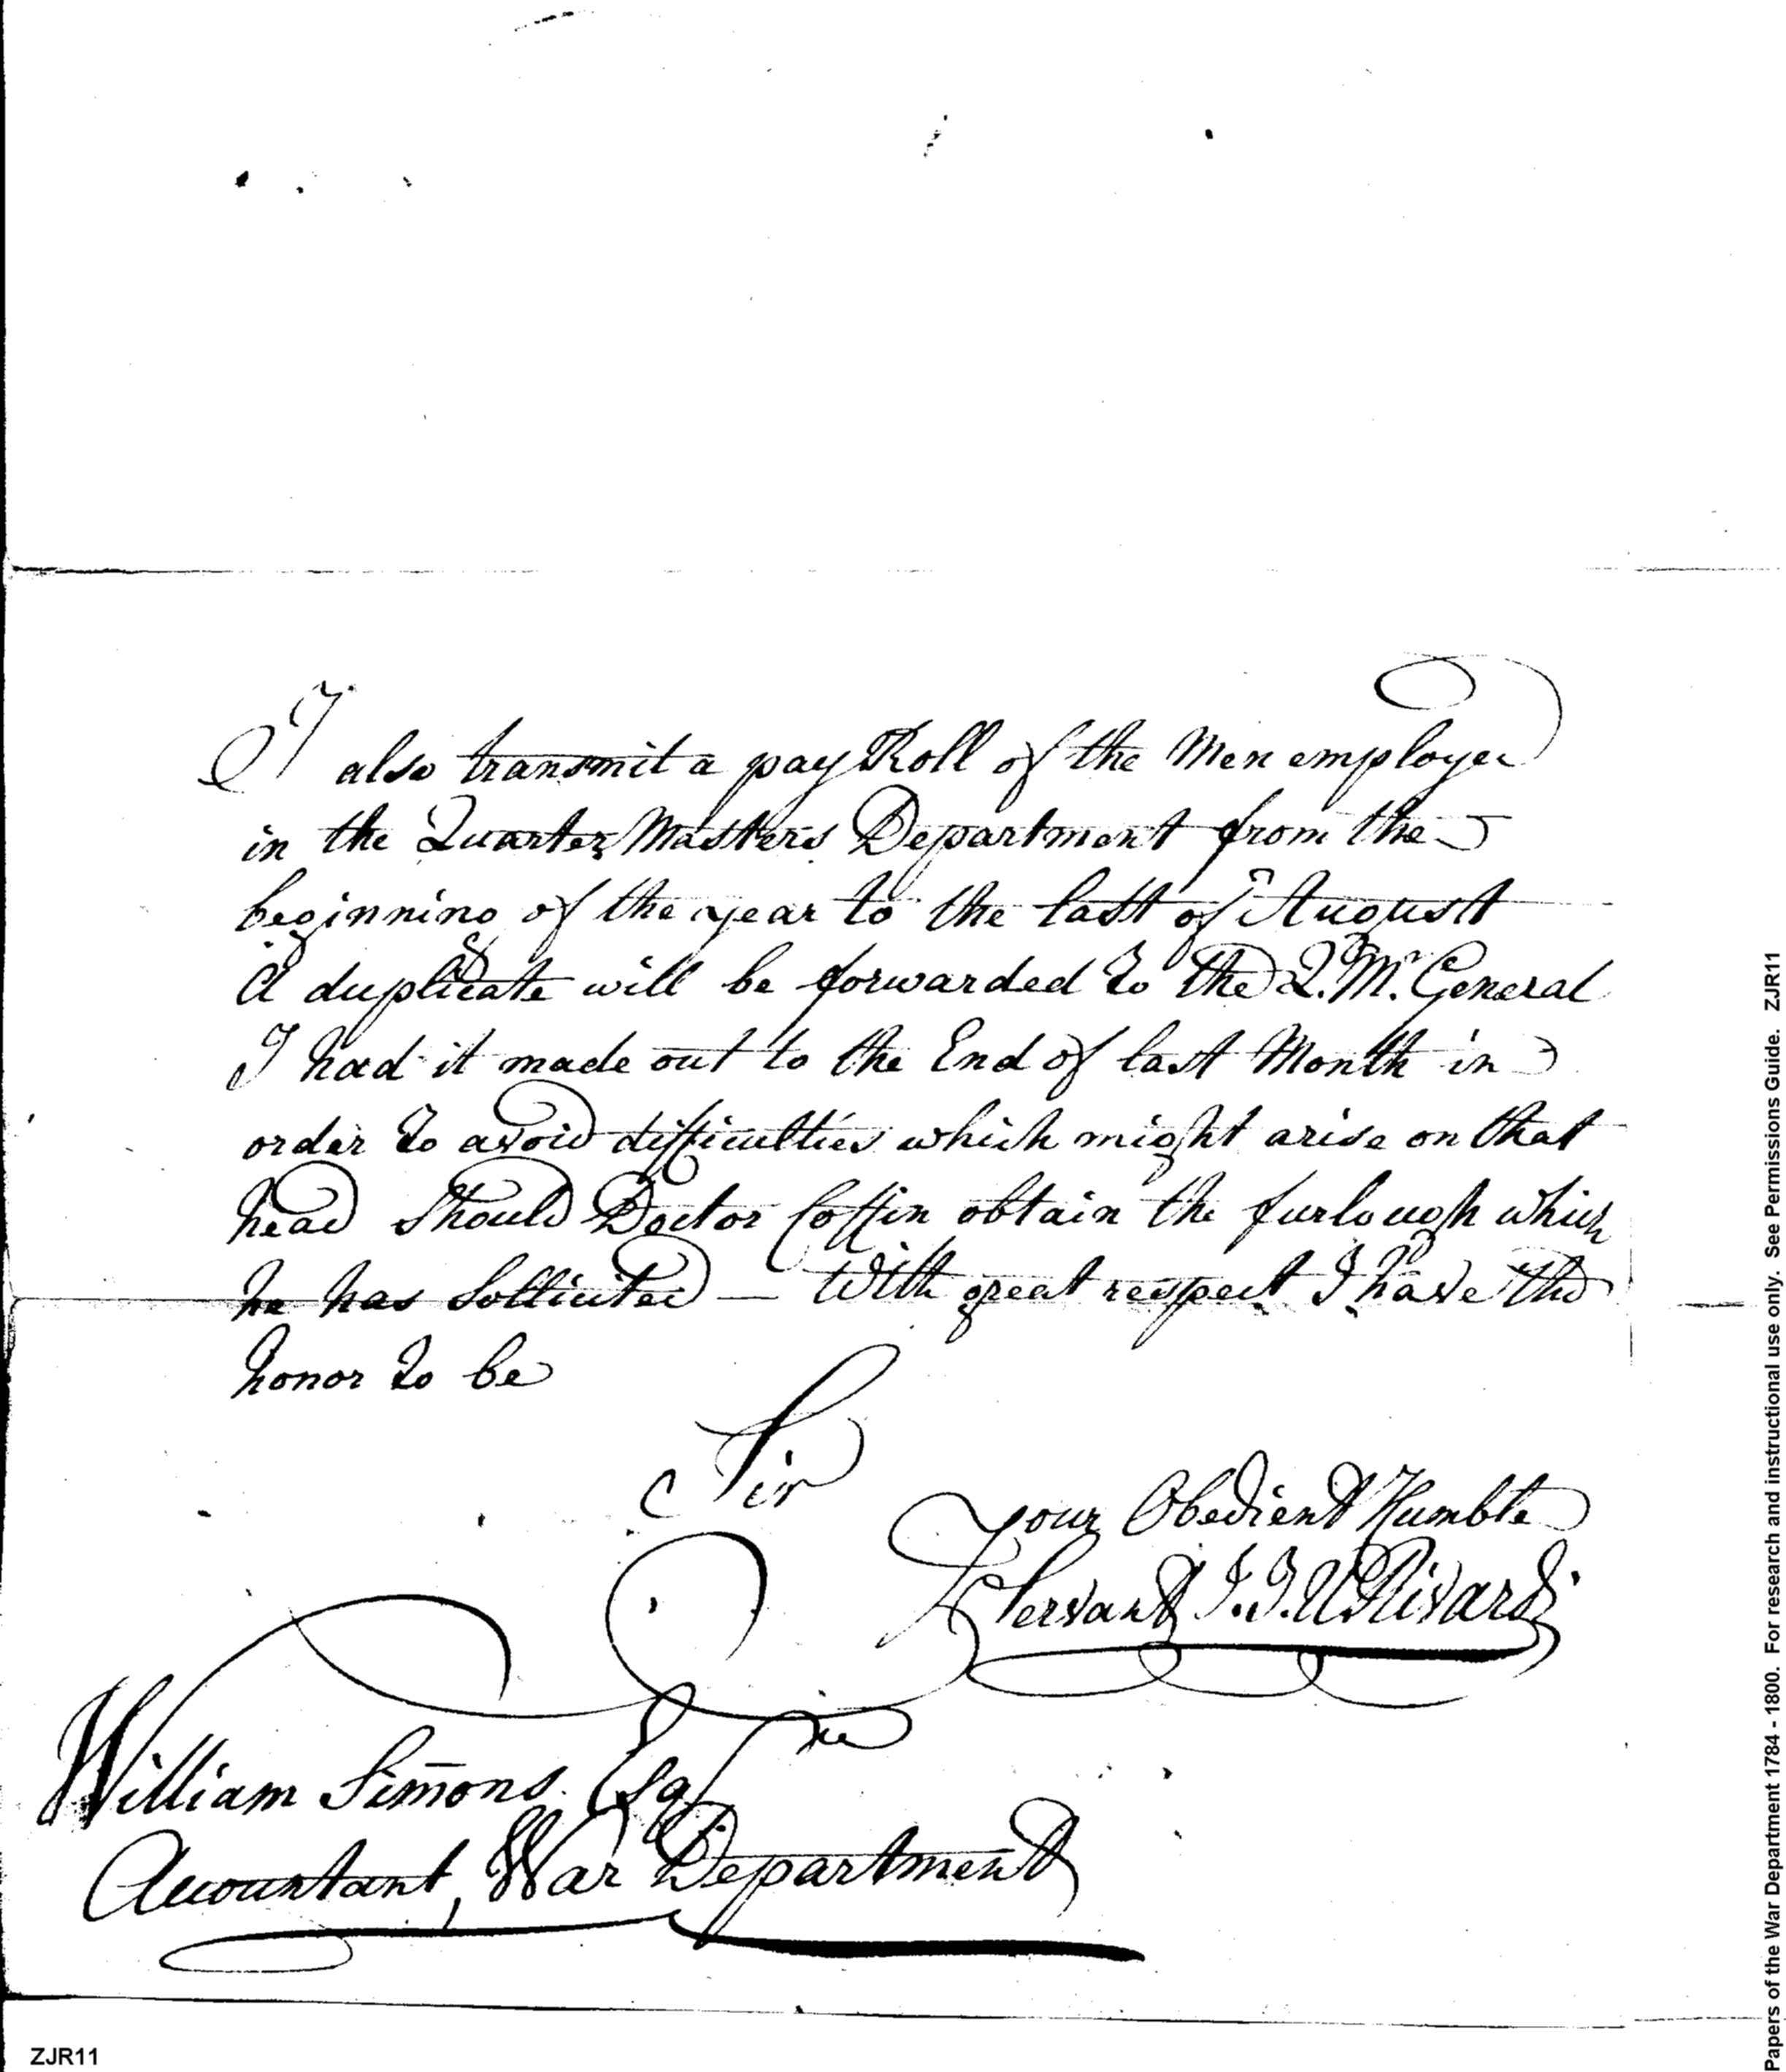 I also transmit a pay Roll of the Men employed
in the Quarter Masters Department from the
beginning of the year to the last of August
A duplicate will be forwarded to the Q. Mr. General
I had it made out to the End of last Month in
order to avoid difficulties which might arise on that
head should Doctor Coffin obtain the furlough which
he has Sollicited — With great respect I have the
honor to be
Sir
Your Obedient Humble
Servant J. J. U. Rivardi
William Simmons Esqre
Accountant, War Department
ZJR11
Papers of the War Department 1784 - 1800. For research and instructional use only. See Permissions Guide. ZJR11